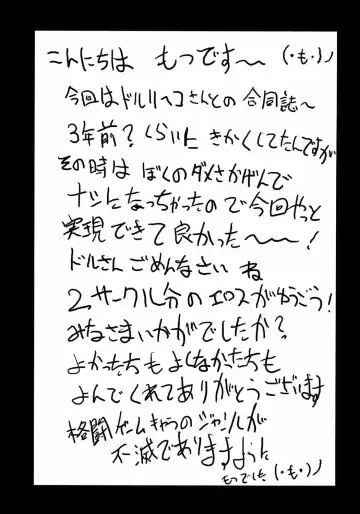 こんにちは もつです〜 (・も・)ノ
今回はドルリヘコさんとの 合同誌〜
3年前?くらいに きかくしてたんですが
その時は ぼくのダメさかげんで
ナシになっちゃったので今回やっと
実現できて良かった〜〜!
ドルさん ごめんなさい ね
2サークル分の エロスがゆうごう!
みなさまいかがでしたか?
よかったちも よくなかったちも
よんでくれてありがとうございます
格闘ゲームキャラのジャンルが
不滅でありますように
もつでした (・も・)ノ